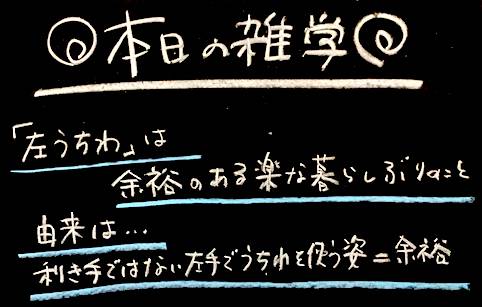 本日の雑学
「左うちわ」は
余裕のある楽な暮らしぶりのこと
由来は…
利き手ではない左手でうちわを使う姿=余裕